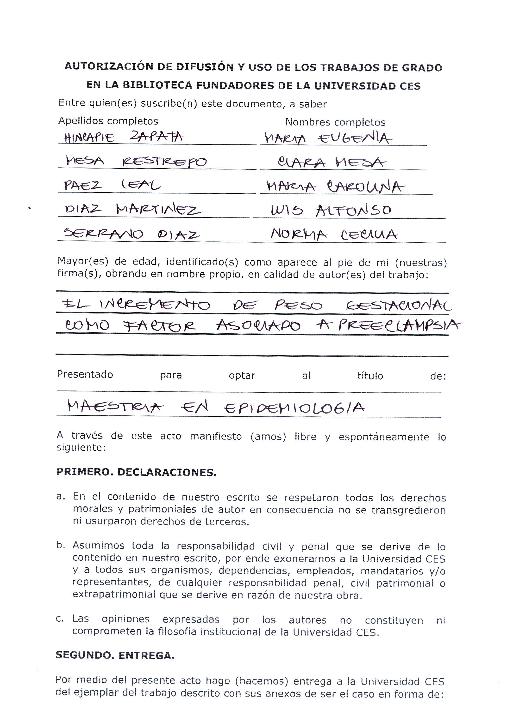 AUTORIZACIÓN DE DIFUSIÓN Y USO DE LOS TRABAJOS DE GRADO
EN LA BIBLIOTECA FUNDADORES DE LA UNIVERSIDAD CES
Entre quien(es) suscribe(n) este documento, a saber
Apellidos completos Nombres completos
HINCAPIE ZAPATA MARIA EUGENIA
MESA RESTREPO CLARA MESA
PAEZ LEAL MARIA CAROLINA
DIAZ MARTINEZ LUIS ALFONSO
SERRANO DIAZ NORMA CECILIA
Mayor(es) de edad, identificado(s) como aparece al pie de mi (nuestras)
firma(s), obrando en nombre propio, en calidad de autor(es) del trabajo:
EL INCREMENTO DE PESO GESTACIONAL
COMO FACTOR ASOCIADO A PREECLAMPSIA
Presentado para optar al título de:
MAESTRIA EN EPIDEMIOLOGIA
A través de este acto manifiesto (amos) libre y espontáneamente lo
siguiente:
PRIMERO. DECLARACIONES.
a. En el contenido de nuestro escrito se respetaron todos los derechos
morales y patrimoniales de autor en consecuencia no se transgredieron
ni usurparon derechos de terceros.
b. Asumimos toda la responsabilidad civil y penal que se derive de lo
contenido en nuestro escrito, por ende exoneramos a la Universidad CES
y a todos sus organismos, dependencias, empleados, mandatarios y/o
representantes, de cualquier responsabilidad penal, civil patrimonial o
extrapatrimonial que se derive en razón de nuestra obra.
c. Las opiniones expresadas por los autores no constituyen ni
comprometen la filosofía institucional de la Universidad CES.
SEGUNDO. ENTREGA.
Por medio del presente acto hago (hacemos) entrega a la Universidad CES
del ejemplar del trabajo descrito con sus anexos de ser el caso en forma de: